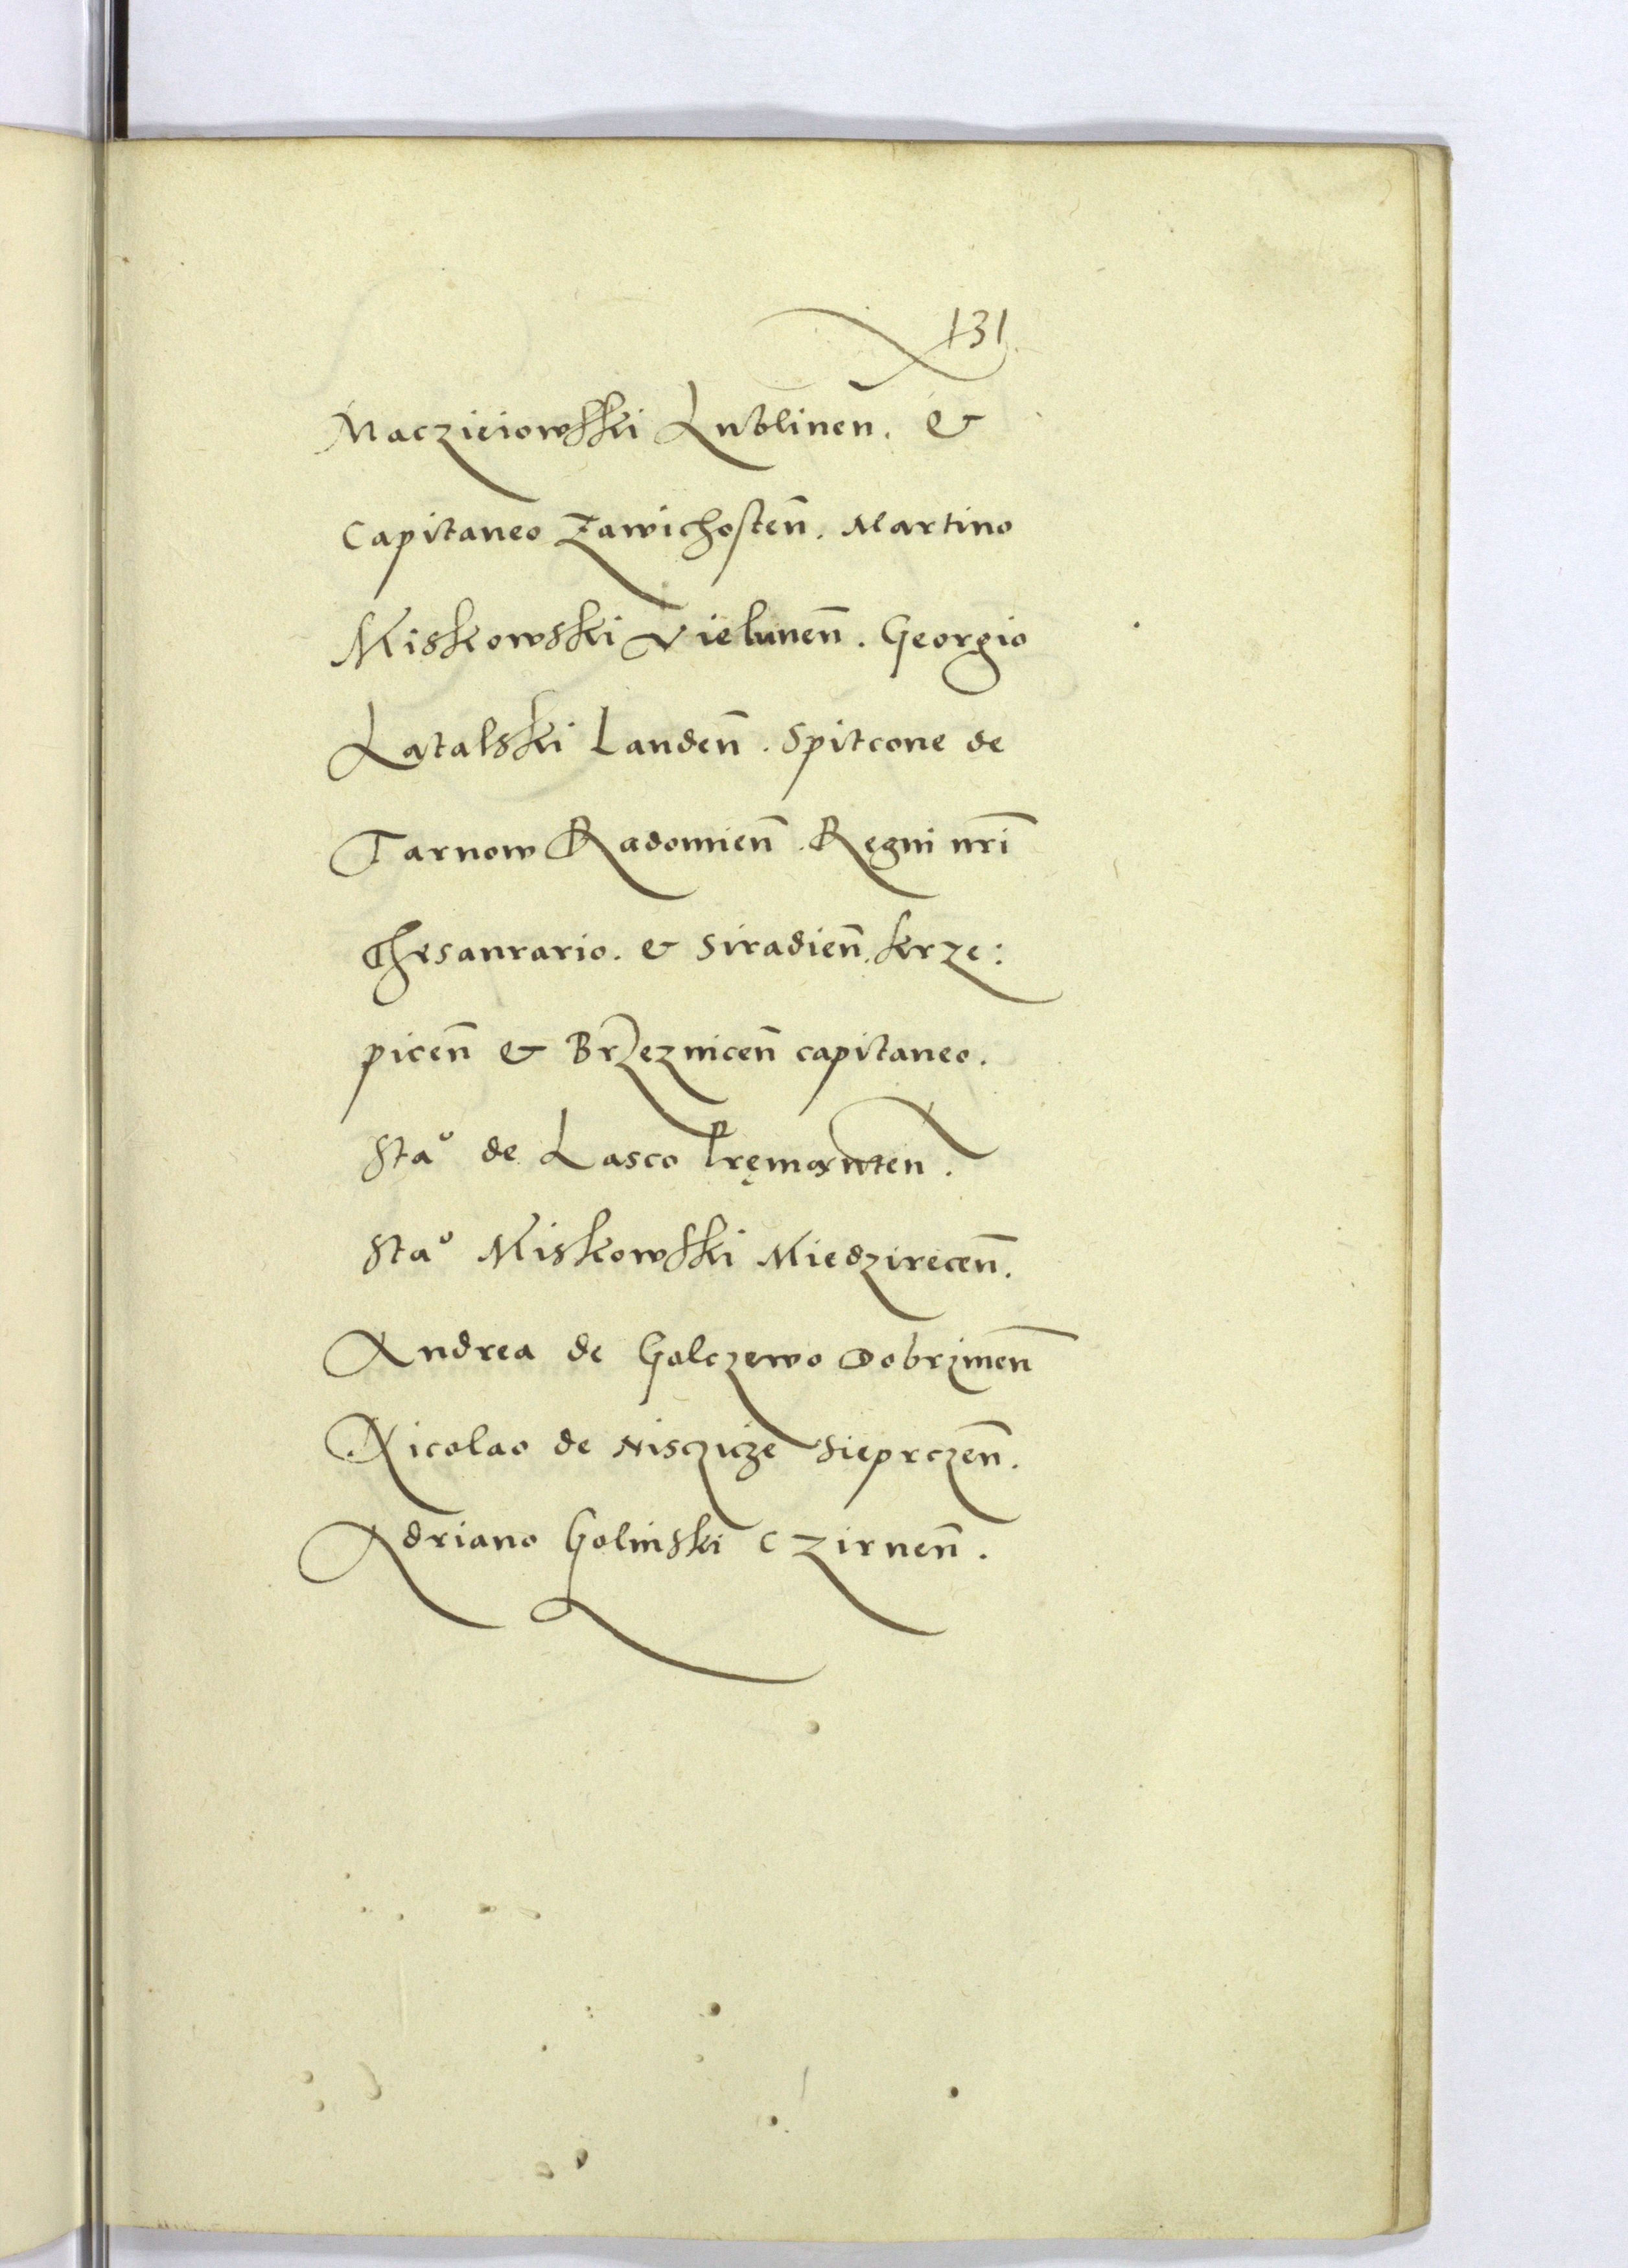 131
Maczieiowsski Lublinen̄. &
Capitaneo Zawichosten̄. Martino
Miskowski Vielunen̄. Georgio
Latalski Landen̄. Spitcone de
Tarnow Radomien̄. Regni nr̄i
Thesaurario. & Siradien̄. krze:
picen̄ & Brzeznicen̄ capitaneo.
Staº de Lasco
Staº Miskowski Miedzirecen̄.
Andrea de Golczewo Dobrzinen̄
Nicolao de Nisczicze Sieprczen̄.
Adriano Golinski Czirnen̄.